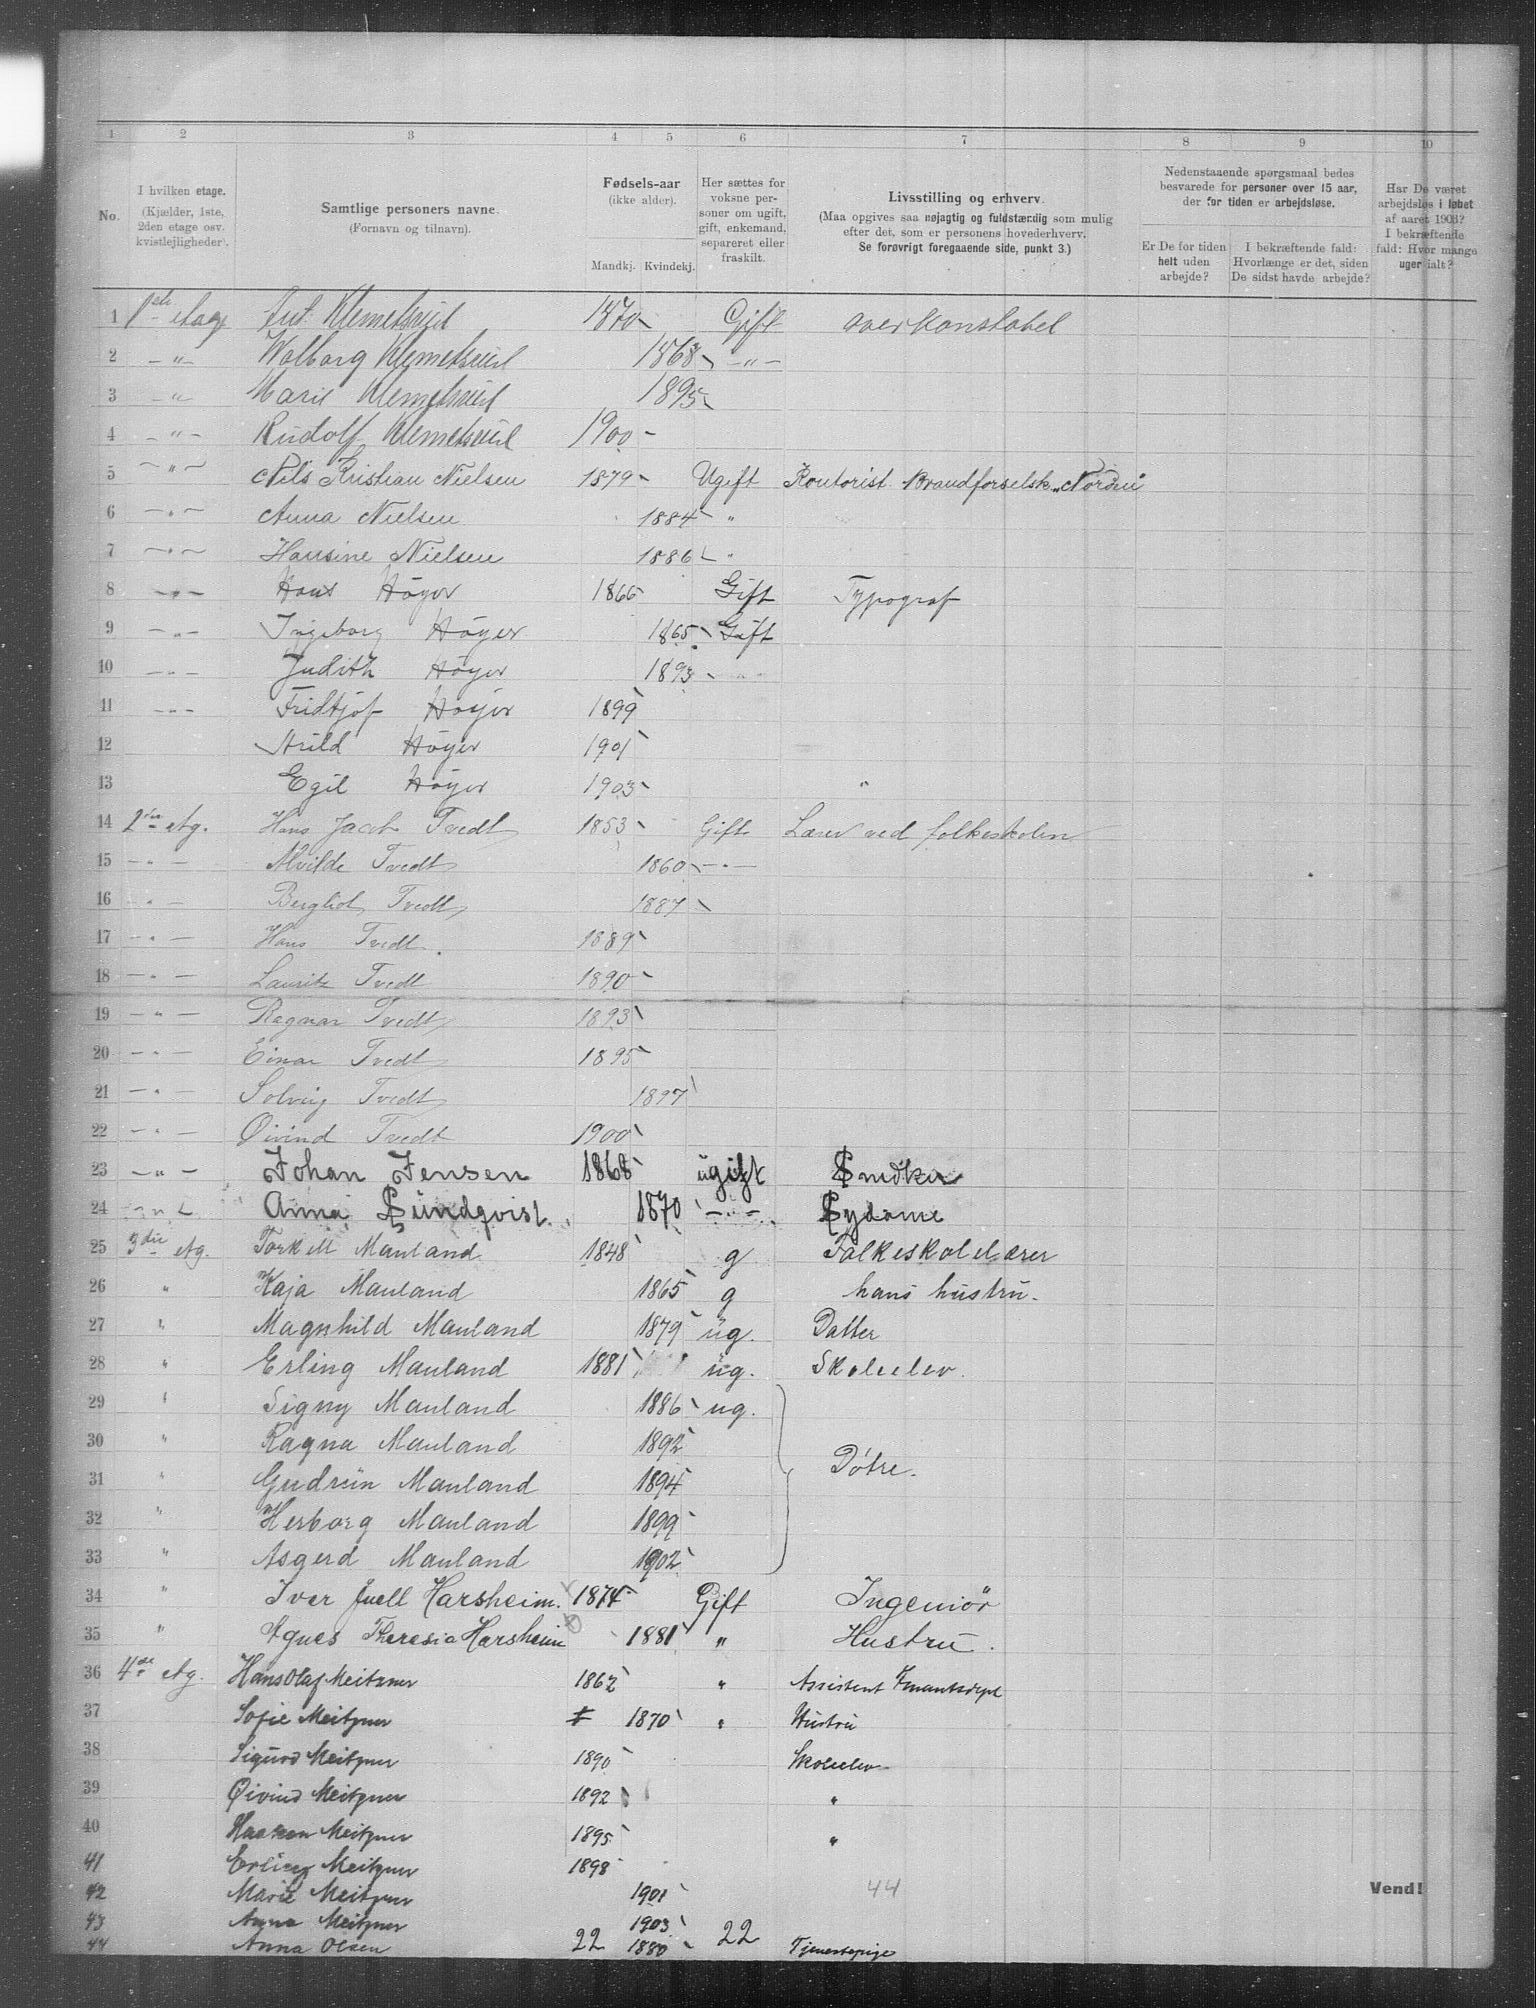 1 2 3 4 5 6 7 8 9 10
No.
I hvilken etage.
(Kjælder, 1ste,
2den etage osv.
kvistlejligheder).
Samtlige personers navne.
(Fornavn og tilnavn).
Fødsels-aar
(ikke alder).
Mandkj. Kvindekj.
Her sættes for
voksne per-
soner om ugift,
gift, enkemand,
separeret eller
fraskilt.
Livsstilling og erhverv.
(Maa opgives saa nøjagtig og fuldstændig som mulig
efter det, som er personens hovederhverv.
Se forøvrigt foregaaende side, punkt 3.)
Nedenstaaende spørgsmaal bedes
besvarede for personer over 15 aar,
der for tiden er arbejdsløse.
Er De for tiden
helt uden
arbejde?
I bekræftende fald:
Hvorlænge er det, siden
De sidst havde arbejde?
Har De været
arbejdsløs i løbet
af aaret 1903?
I bekræftende
fald: Hvor mange
uger ialt?
1 1ste etage Ant. Klemetsrud 1870 Gift overkonstabel
2 — " — Wolborg Klemetsrud 1868 — " —
3 — " Marie Klemetsrud 1895
4 — " — Rudolf Klemetsrud 1900
5 — " — Nils Kristian Nielsen 1879 Ugift Kontorist Brandforselsk. „Norden"
6 — " — Anna Nielsen 1884 "
7 — " — Hansine Nielsen 1886 "
8 — " — Hans Höyer 1866 Gift Typograf
9 — " — Ingeborg Höyer 1865 Gift
10 — " — Judith Höyer 1893
11 — " — Fridtjof Höyer 1899
12 Arild Höyer 1901
13 Egil Höyer 1903 "
14 2den etg. Hans Jacob Tvedt 1853 Gift Lærer ved folkeskolen
15 — " — Alvilde Tvedt 1860 — " —
16 — " — Bergliot Tvedt 1887
17 — " — Hans Tvedt 1889
18 — " — Lauritz Tvedt 1890
19 — " — Ragnar Tvedt 1893
20 — " — Einar Tvedt 1895
21 — " — Solveig Tvedt 1897
22 — " — Øivind Tvedt 1900
23 — " — Johan Jensen 1868 ugift Snedker
24 — " — Anna Sundqvist 1870 — " — Sydame
25 3die etg. Torkell Mauland 1848 g Folkeskolelærer
26 " Kaja Mauland 1865 g hans hustru.
27 " Magnhild Mauland 1879 ug. Datter
28 " Erling Mauland 1881 ug. Skoleelev.
29 " Signy Mauland 1886 ug.
30 " Ragna Mauland 1892
Døtre.
31 " Gudrun Mauland 1894
32 " Herborg Mauland 1899
33 " Asgerd Mauland 1902
34 " Iver Juell Harsheim. 1874 Gift Ingeniör
35 " Agnes Theresia Harsheim 1881 " Hustru.
36 4de etg. Hans Olaf Meitzner 1862 " Assistent Finantsdept
37 Sofie Meitzner 1870 " Hustru
38 Sigurd Meitzner 1890 Skoleelev
39 Øivind Meitzner 1892 "
40 Haakon Meitzner 1895 "
41 Erling Meitzner 1898
42 Marie Meitzner 1901 44 Vend!
43 Anna Meitzner 1903
44 Anna Olsen 22 1880 22 Tjenestepige